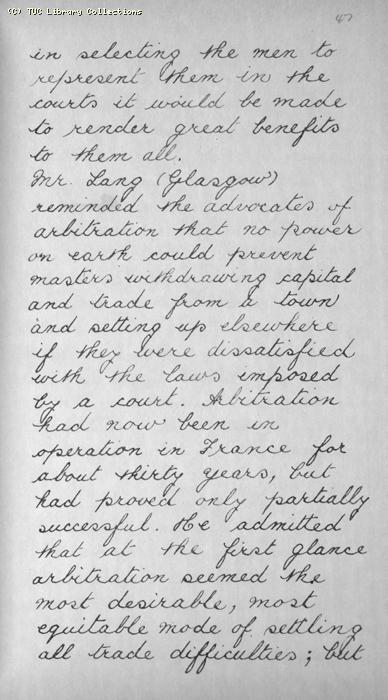 (C) TUC Library Collections
47
in selecting the men to
represent them in the
courts it would be made
to render great benefits
to them all.
Mr. Lang (Glasgow)
reminded the advocates of
arbitration that no power
on earth could prevent
masters withdrawing capital
and trade from a town
and setting up elsewhere
if they were dissatisfied
with the laws imposed
by a court. Arbitration
had now been in
operation in France for
about thirty years, but
had proved only partially
successful. He admitted
that at the first glance
arbitration seemed the
most desirable, most
equitable mode of settling
all trade difficulties; but